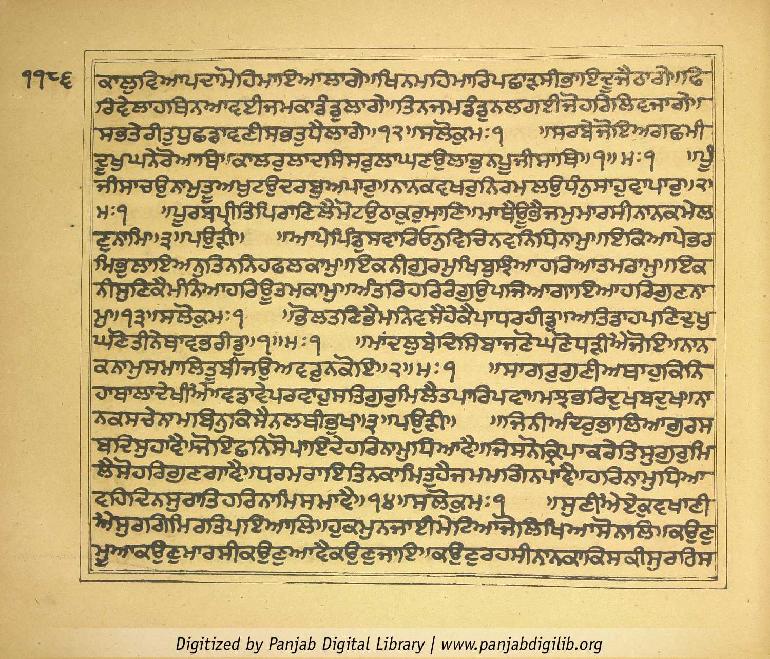 ੧੧੮੬
ਕਾਲੁਵਿਆਪਦਾਮੋਹਿਮਾਇਆਲਾਗੇ॥ਖਿਨਮਹਿਮਾਰਿਪਛਾੜਸੀਭਾਇਦੂਜੈਠਾਗੇ॥ਫਿ
ਰਿਵੇਲਾਹਥਿਨਆਵਈਜਮਕਾਡੰਡੁਲਾਗੇ॥ਤਿਨਜਮਡੰਡੁਨਲਗਈਜੋਹਰਿਲਿਵਜਾਗੇ॥
ਸਭਤੇਰੀਤੁਧੁਛਡਾਵਣੀਸਭਤੁਧੈਲਾਗੇ॥੧੨॥ਸਲੋਕੁਮਃ੧ ॥ਸਰਬੇਜੋਇਅਗਛਮੀ
ਦੂਖੁਘਨੇਰੋਆਥਿ॥ਕਾਲਰੁਲਾਦਸਿਸਰੁਲਾਘਣਉਲਾਭੁਨਪੂਜੀਸਾਥਿ॥੧॥ਮਃ੧ ॥ਪੂੰ
ਜੀਸਾਚਉਨਾਮੁਤੂਅਖੁਟਉਦਰਬੁਅਪਾਰੁ॥ਨਾਨਕਵਖਰੁਨਿਰਮਲਉਧੰਨੁਸਾਹੁਵਾਪਾਰੁ॥੨॥
ਮਃ੧ ॥ਪੂਰਬਪ੍ਰੀਤਿਪਿਰਾਣਿਲੈਮੋਟਉਠਾਕੁਰੁਮਾਣਿ॥ਮਾਥੈਊਭੈਜਮੁਮਾਰਸੀਨਾਨਕਮੇਲ
ਣੁਨਾਮਿ॥੩॥ਪਉੜੀ॥ ॥ਆਪੇਪਿੰਡੁਸਵਾਰਿਓਨੁਵਿਚਿਨਵਨਿਧਿਨਾਮੁ॥ਇਕਿਆਪੇਭਰ
ਮਿਭੁਲਾਇਅਨੁਤਿਨਨਿਹਫਲਕਾਮੁ॥ਇਕਨੀਗੁਰਮੁਖਿਬੁਝਿਆਹਰਿਆਤਮਰਾਮੁ॥ਇਕ
ਨੀਸੁਣਿਕੈਮੰਨਿਆਹਰਿਊਤਮਕਾਮੁ॥ਅੰਤਰਿਹਰਿਰੰਗੁਉਪਜਿਆਗਾਇਆਹਰਿਗੁਣਨਾ
ਮੁ॥੧੩॥ਸਲੋਕੁਮਃ੧ ॥ਭੋਲਤਣਿਭੈਮਨਿਵਸੈਹੇਕੈਪਾਧਰਹੀਡੁ॥ਅਤਿਡਾਹਪਣਿਦੁਖੁ
ਘਣੋਤੀਨੇਥਾਵਭਰੀਡੁ॥੧॥ਮਃ੧ ॥ਮਾਂਦਲੁਬੇਦਿਸਿਬਾਜਣੋਘਣੋਧੜੀਐਜੋਇ॥ਨਾਨ
ਕਨਾਮੁਸਮਾਲਿਤੂਬੀਜਉਅਵਰੁਨਕੋਇ॥੨॥ਮਃ੧ ॥ਸਾਗਰੁਗੁਣੀਅਥਾਹੁਕਿਨਿ
ਹਾਥਾਲਾਦੇਖੀਐ॥ਵਡਾਵੇਪਰਵਾਹੁਸਤਿਗੁਰੁਮਿਲੈਤਪਾਰਿਪਵਾ॥ਮਝਭਰਿਦੁਖਬਦੁਖ॥ਨਾ
ਨਕਸਚੇਨਾਮਬਿਨੁਕਿਸੈਨਲਥੀਭੁਖ॥੩॥ਪਉੜੀ॥ ॥ਜਿਨੀਅੰਦਰੁਭਾਲਿਆਗੁਰਸ
ਬਦਿਸੁਹਾਵੈ॥ਜੋਇਛਨਿਸੋਪਾਇਦੇਹਰਿਨਾਮੁਧਿਆਵੈ॥ਜਿਸਨੋਕ੍ਰਿਪਾਕਰੇਤਿਸੁਗੁਰੁਮਿ
ਲੈਸੋਹਰਿਗੁਣਗਾਵੈ॥ਧਰਮਰਾਇਤਿਨਕਾਮਿਤੁਹੈਜਮਮਗਿਨਪਾਵੈ॥ਹਰਿਨਾਮੁਧਿਆ
ਵਹਿਦਿਨਸੁਰਾਤਿਹਰਿਨਾਮਿਸਮਾਵੈ॥੧੪॥ਸਲੋਕੁਮਃ੧ ॥ਸੁਣੀਐਏਕੁਵਖਾਣੀ
ਐਸੁਰਗਿਮਿਰਤਿਪਇਆਲਿ॥ਹੁਕਮੁਨਜਾਈਮੇਟਿਆਜੋਲਿਖਿਆਸੋਨਾਲਿ॥ਕਉਣੁ
ਮੂਆਕਉਣੁਮਾਰਸੀਕਉਣੁਆਵੈਕਉਣੁਜਾਇ॥ਕਉਣੁਰਹਸੀਨਾਨਕਾਕਿਸਕੀਸੁਰਤਿਸ
Digitized by Panjab Digital Library | www.panjabdigilib.org